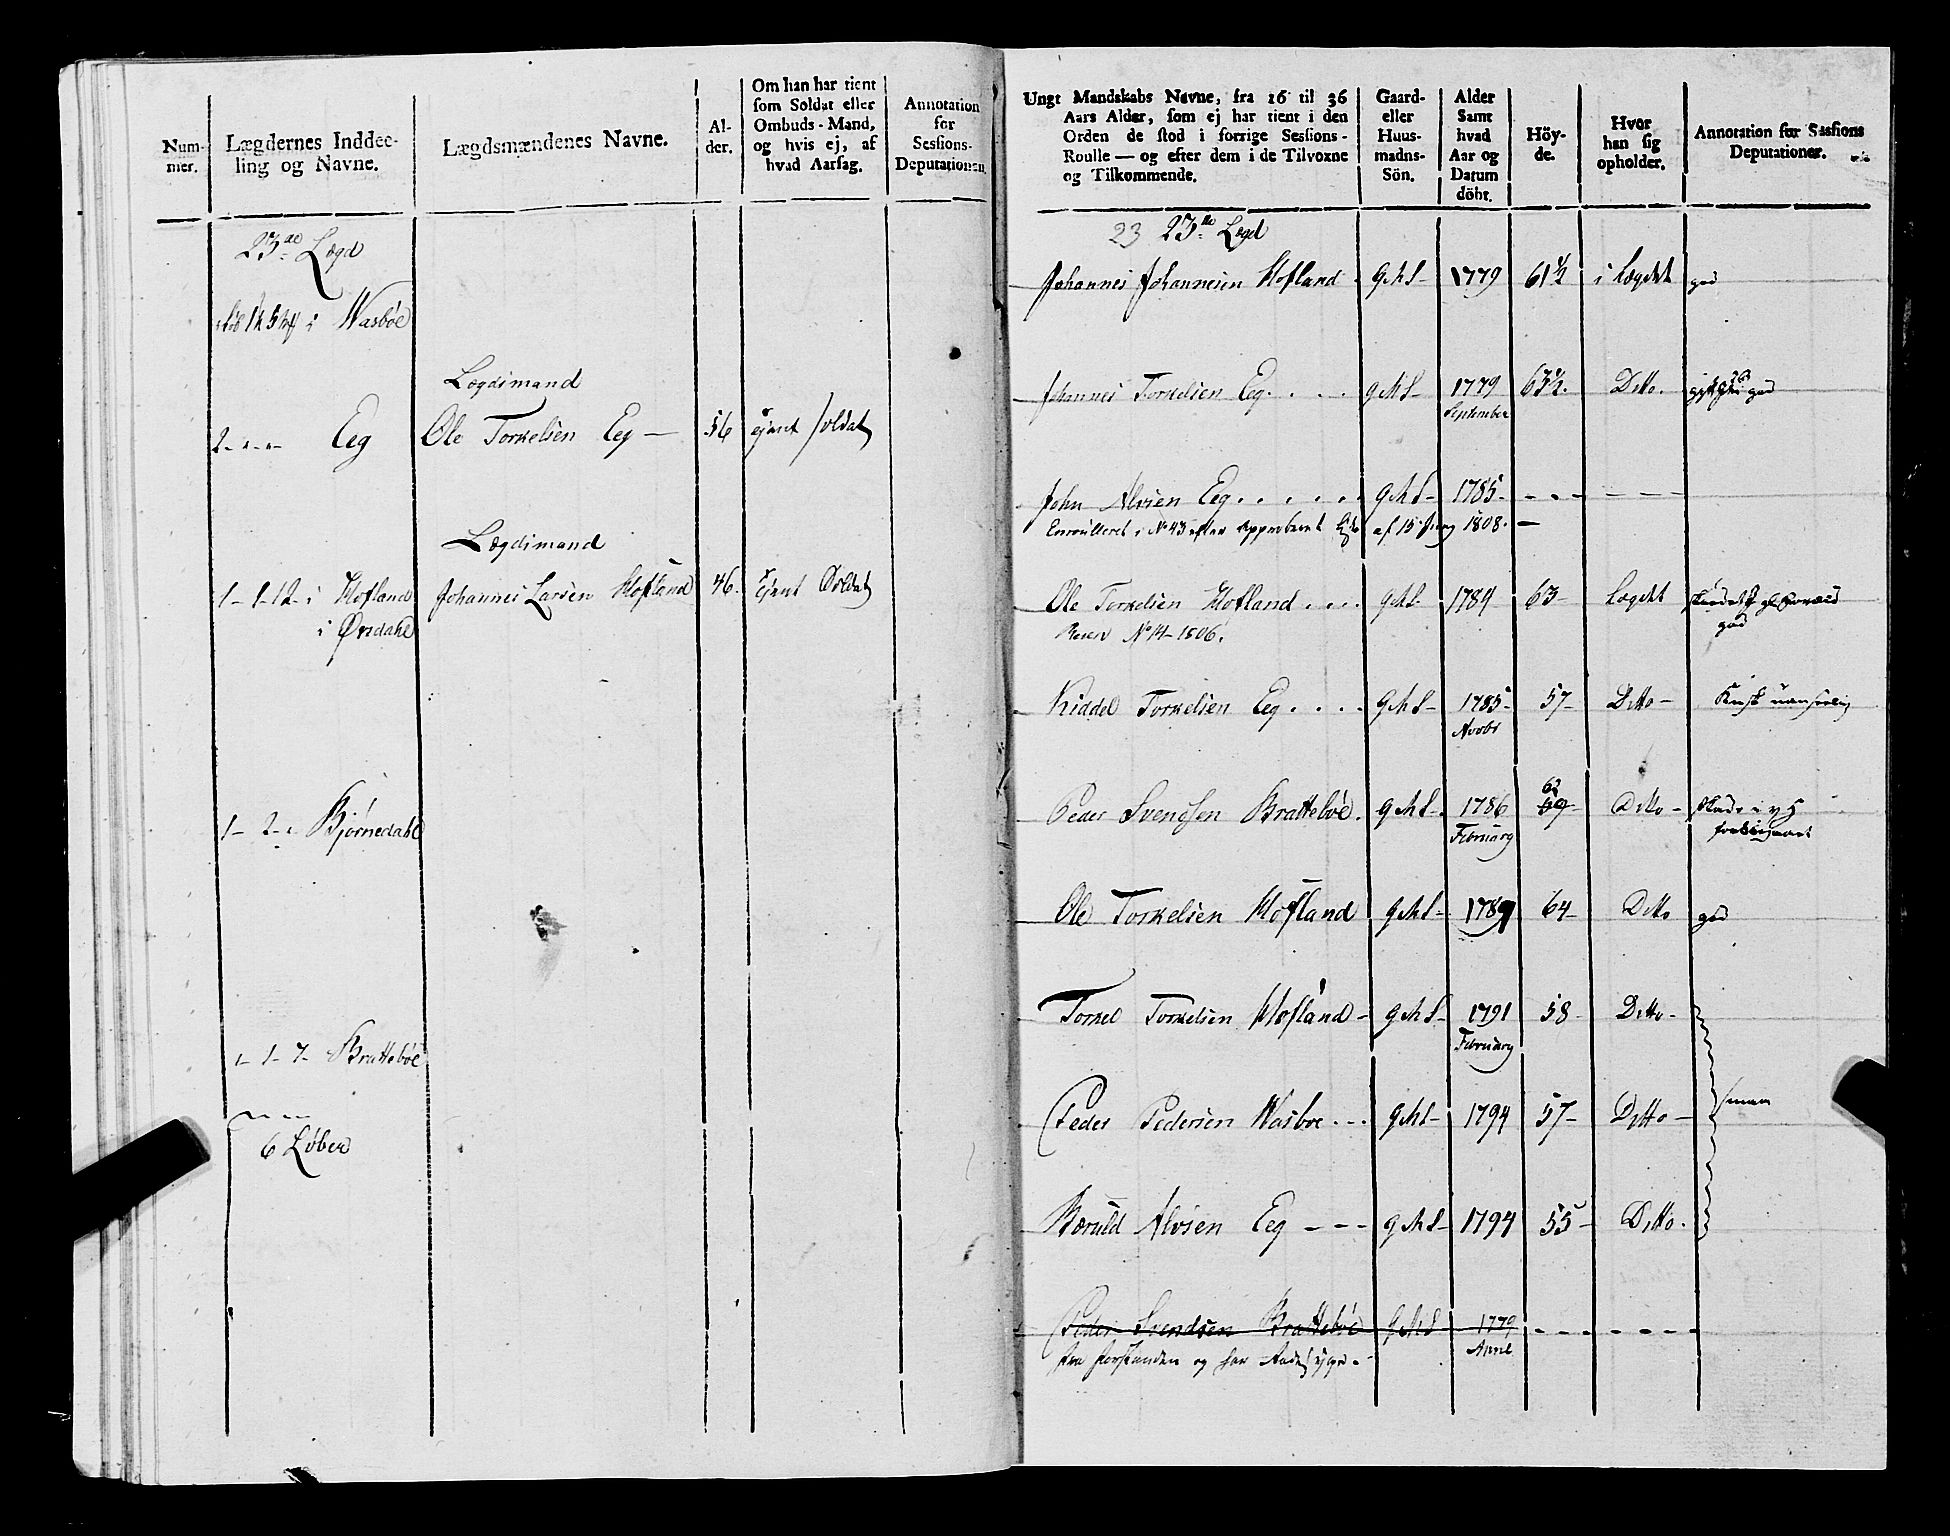 Num-
mer.
Lægdernes Inddee-
ling og Navne.
Lægdsmændenes Navne.
Al-
der.
Om han har tient
som Soldat eller
Ombuds-Mand,
og hvis ej, af
hvad Aarsag.
Annotation
for
Sessions-
Deputationen.
23de Lægd
i Wasbøe
Lægdsmand
2- Eeg Ole Torkelsen Eeg — 56 ejent Soldat
Lægdsmand
1-1-12- i Hofland Johannes Larsen Hofland 46. ejent Soldat
i Ørsdahl
1-2- Bjørnedahl
1-1-7- Brattebøe
6 Løber
Ungt Mandskabs Navne, fra 16 til 36
Aars Alder, som ej har tient i den
Orden de stod i forrige Sessions-
Roulle — og efter dem i de Tilvoxne
og Tilkommende.
Gaard-
eller
Huus-
madns-
Sön.
Alder
Samt
hvad
Aar og
Datum
döbt.
Höy-
de.
Hvor
han sig
opholder.
Annotation for Sessions
Deputationen.
23 23de Lægd
Johannes Johannesen Hofland gMS 1779 61 1/2 i Lægdet god
Johannes Torkelsen Eeg. . . . gMS 1779 63 1/2. Ditto. god
September
John Alvsen Eeg. . . . . . gMS- 1785- - - - - - -
Enroulleret i No 43 efter Approberet af 15 Juny 1808. —
Ole Torkelsen Hofland. . . . gMS. 1784 63- Lægdet
Reserv No 14-1806. god
Kiddel Torkelsen Eeg. . . . gMS- 1785- 57- Ditto-
Novbr
62
Peder Svendsen Brattebøe. gMS. 1786 59 Ditto-
February
Ole Torkelsen Hofland gMS- 1789 64- Ditto god
Torkel Torkelsen Hofland- gMS- 1791 58 Ditto-
February
Peder Pedersen Wasboe. - - gMS- 1794 57- Ditto- smaa
Bæruld Alvsen Eeg - - - gMS- 1794 55- Ditto.
Peder Svendsen Brattebøe gMS 1779 - - - - - - -
og har